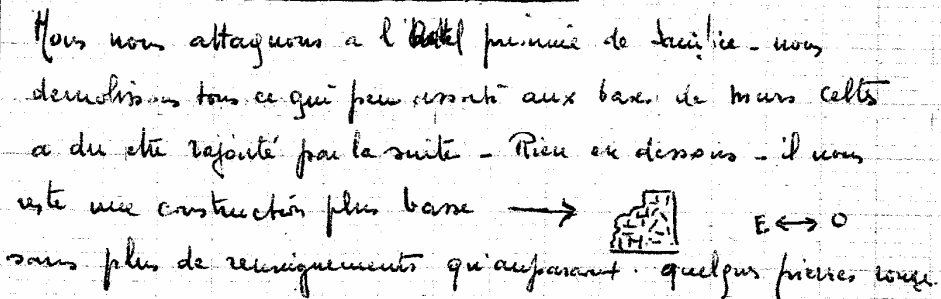 Nous nous attaquons a l'Autel présumé de sacrifice - nous
demolissons tous ce qui peu assorti aux bases de murs celtes
a du etre rajouté par la suite - Rien en dessous - il nous
reste une construction plus basse → E ↔ O
sans plus de renseignements qu'auparavant. quelques pierres rouge.